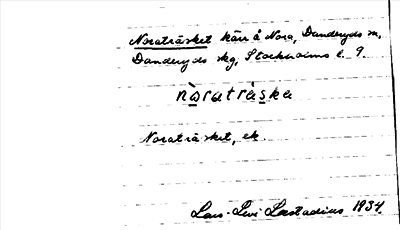 Noraträsket kärr å Nora, Danderyds sn,
Danderyds skg, Stockholms l. 9.
nòratràska
Noraträsket, ek.
Lars-Levi Læstadius 1934.